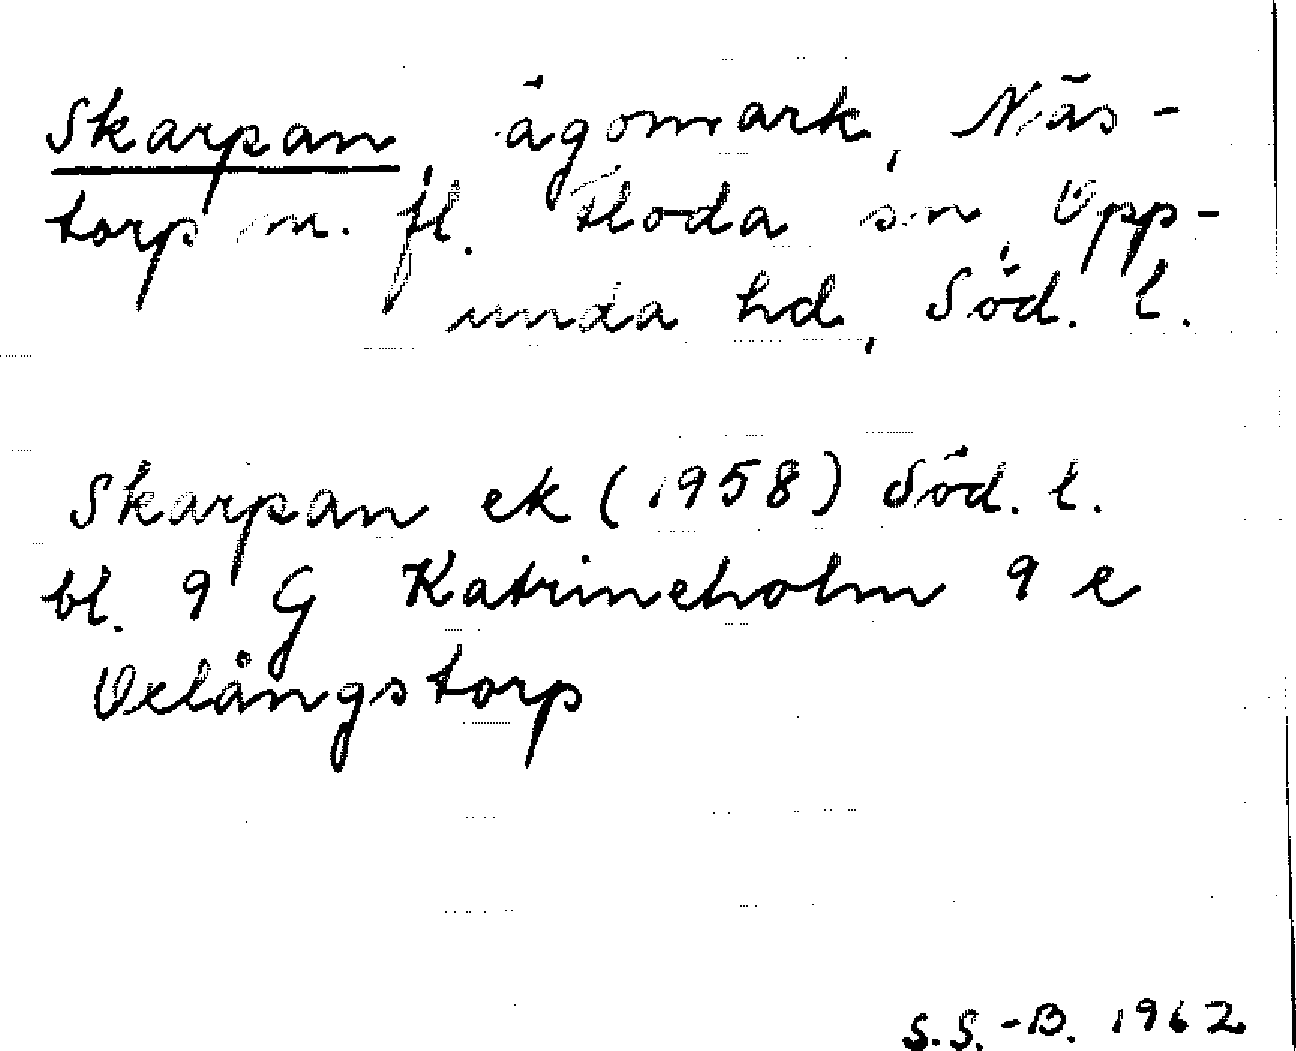 Skarpan, ägomark, Näs-
torp m. fl. Floda sn, Opp-
unda hd, Söd. l.
Skarpan ek (1958) Söd. l.
bl. 9 G Katrineholm 9 e
Oxlångstorp
S.S.-B. 1962